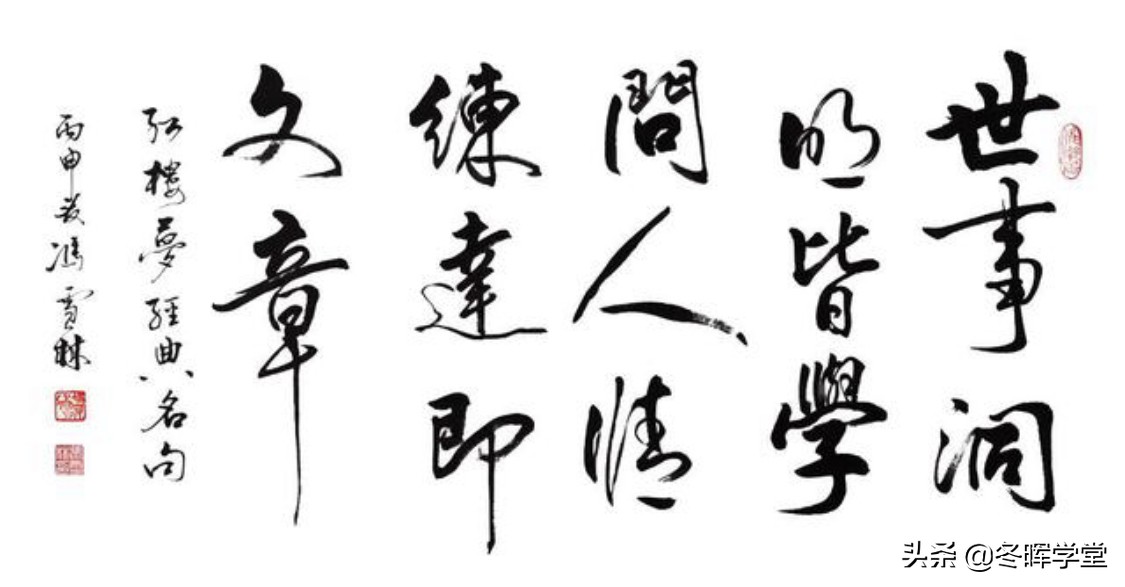 世事洞
明皆學
問人情
練達即
文章
紅樓夢經典名句
丙申馮雪林
头条 @冬晖学堂